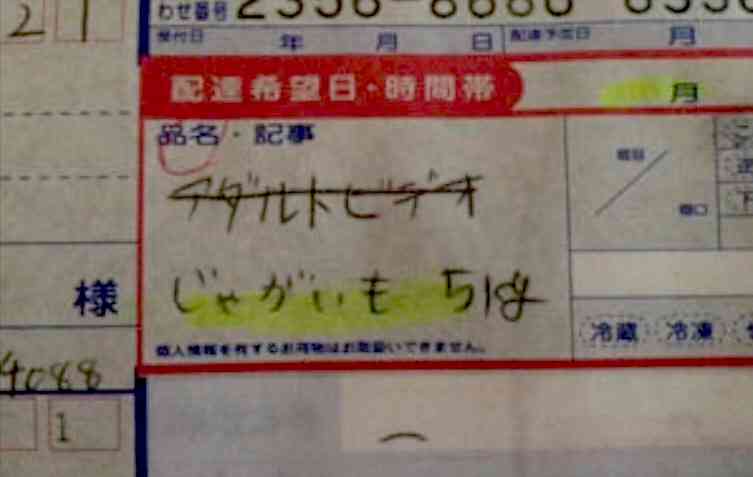 21
わせ番号 2356-8686
受付日 年 月 日 配達予定日 月
配達希望日・時間帯 月
品名・記事
アダルトビデオ
じゃがいも 5は
様
個人情報を有するお荷物はお取扱いできません。
冷蔵 冷凍
4088
1